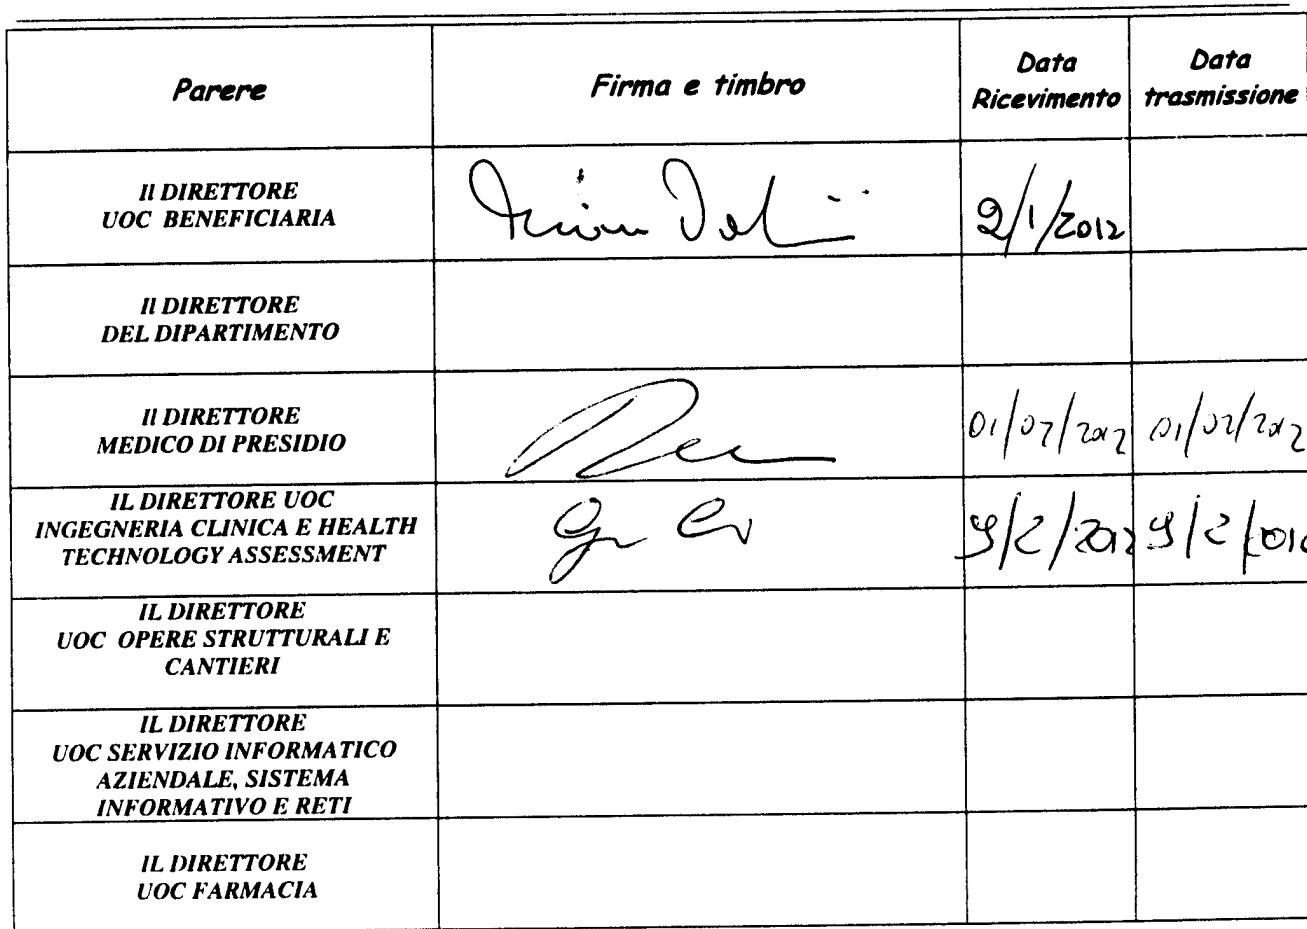 Parere
Firma e timbro
Data
Ricevimento
Data
trasmissione
Il DIRETTORE
UOC BENEFICIARIA
2/1/2012
Il DIRETTORE
DEL DIPARTIMENTO
Il DIRETTORE
MEDICO DI PRESIDIO
01/02/2012
01/02/2012
IL DIRETTORE UOC
INGEGNERIA CLINICA E HEALTH
TECHNOLOGY ASSESSMENT
9/2/2012
9/2/201
IL DIRETTORE
UOC OPERE STRUTTURALI E
CANTIERI
IL DIRETTORE
UOC SERVIZIO INFORMATICO
AZIENDALE, SISTEMA
INFORMATIVO E RETI
IL DIRETTORE
UOC FARMACIA